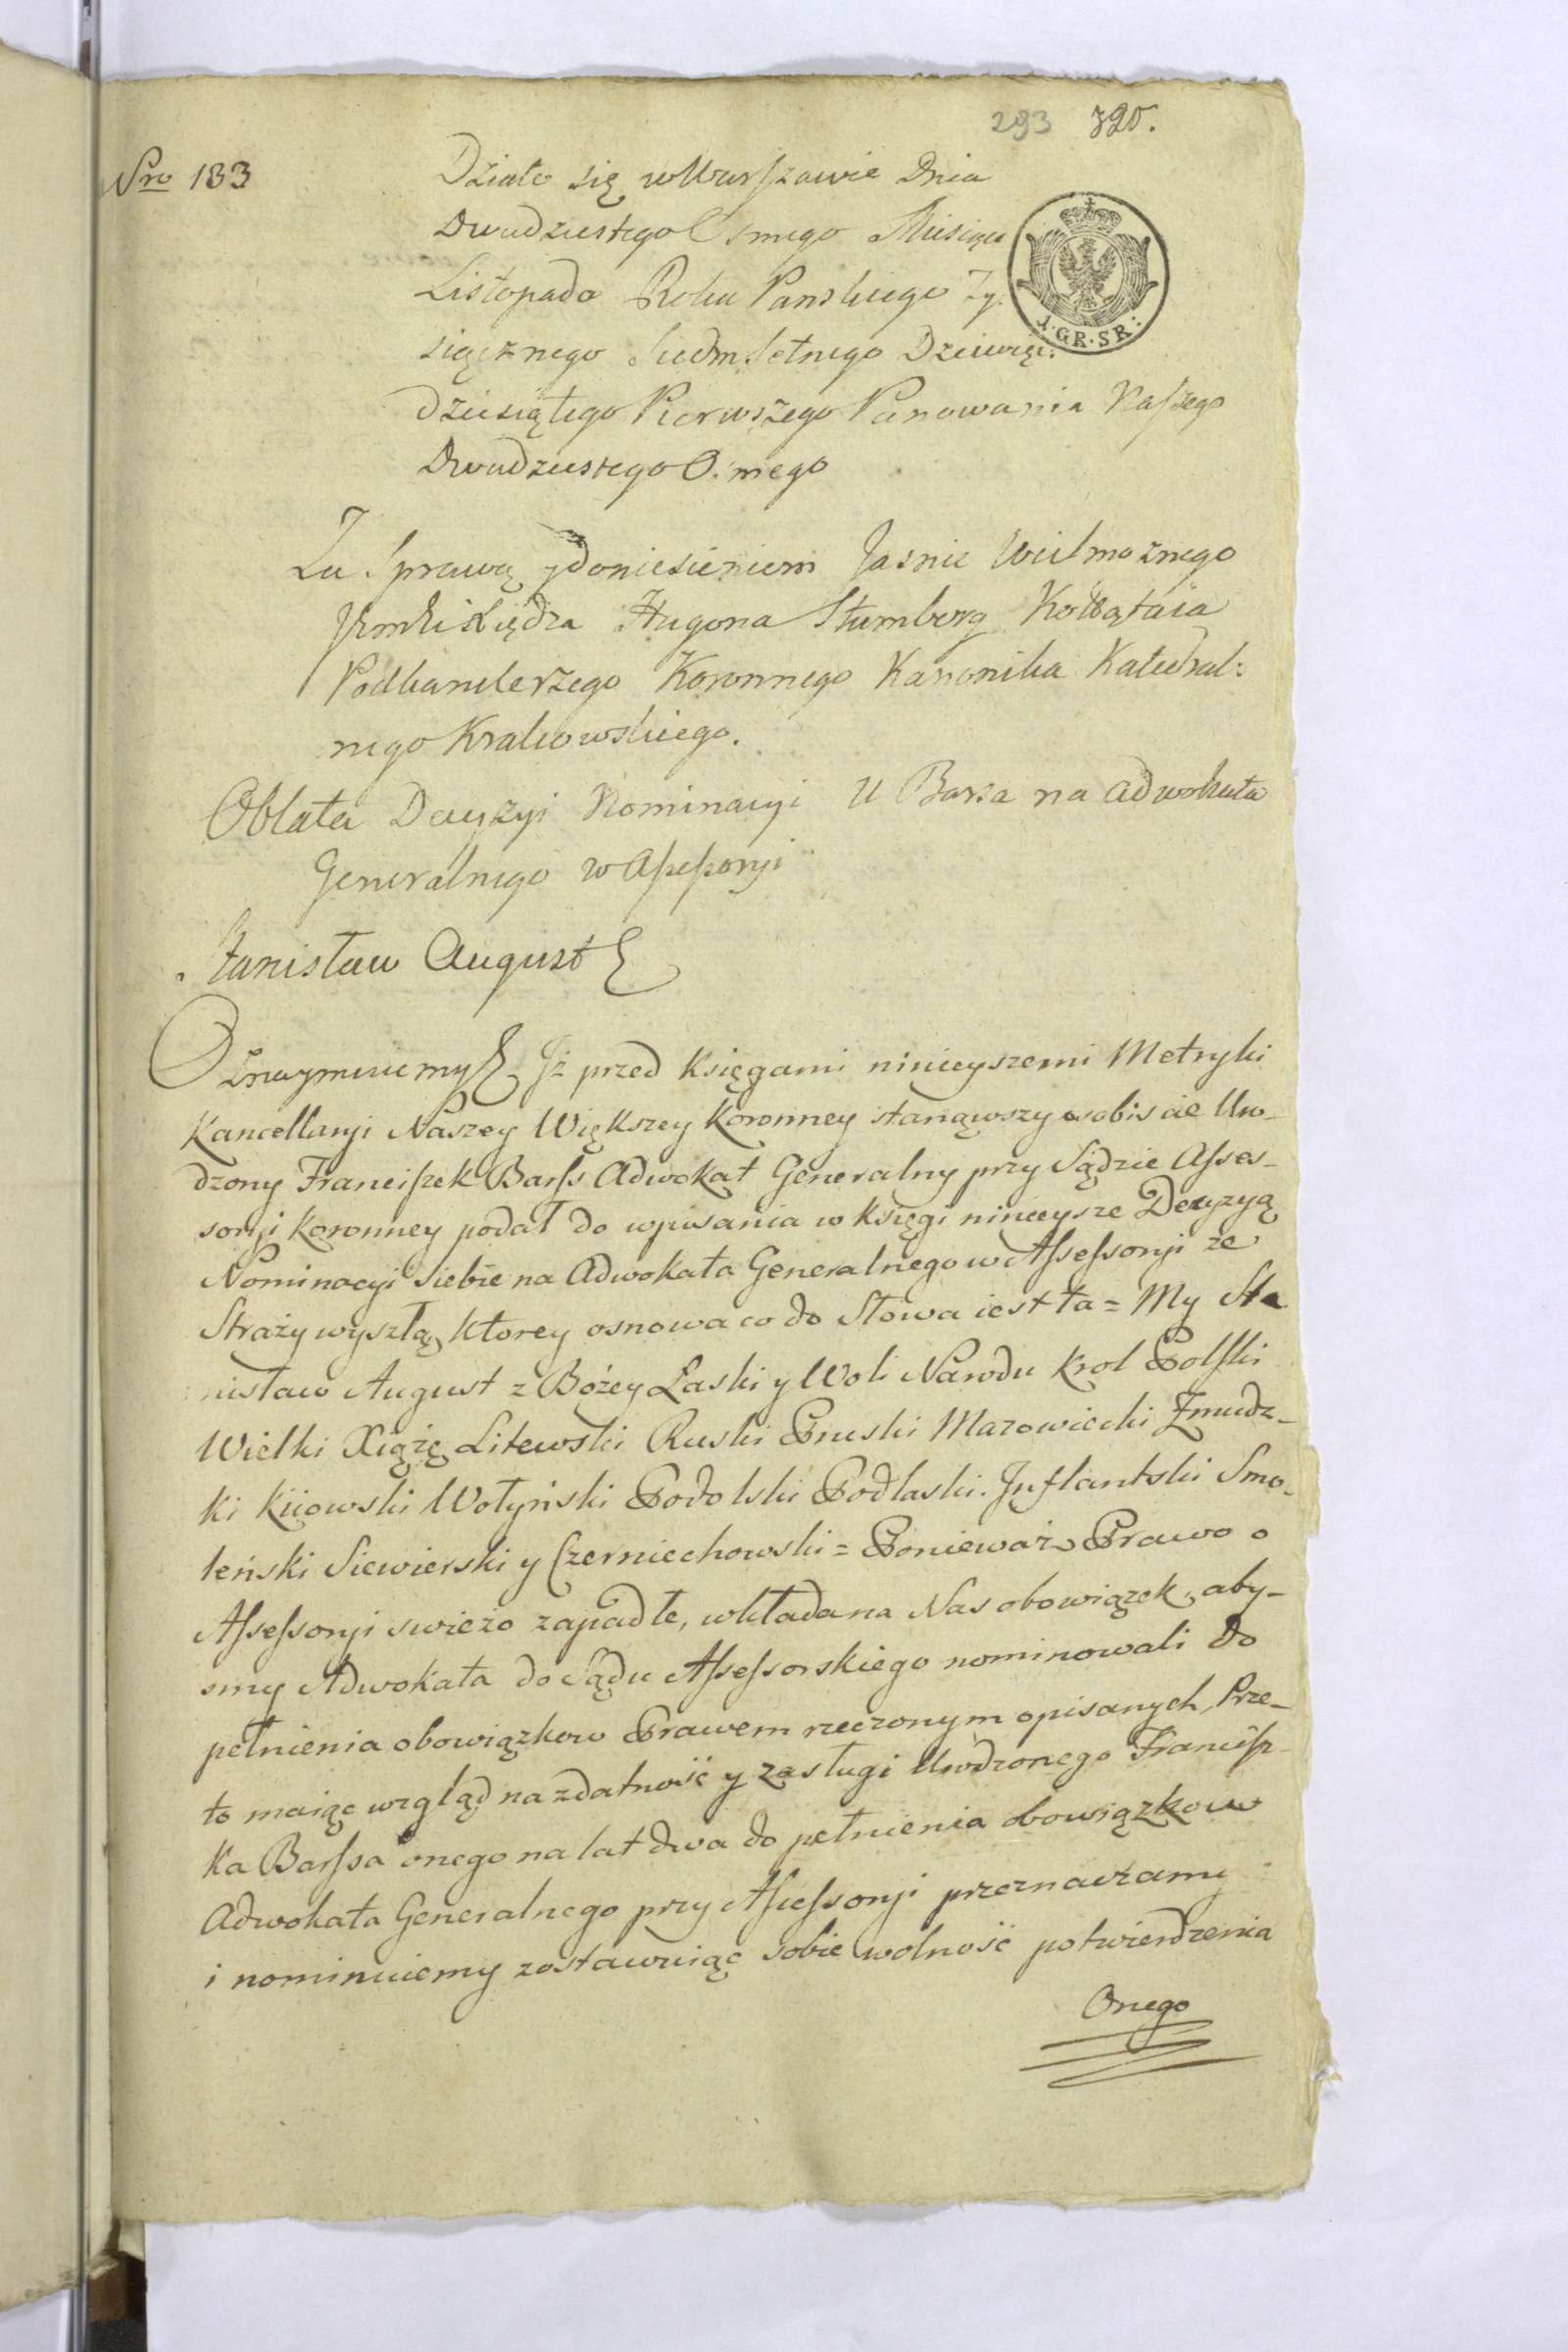 293 325.
Nro 133
Działo się w Warszawie Dnia
Dwudziestego Osmego Miesiąca
Listopada Roku Panskiego Ty:
siącznego Siedmsetnego Dziewię:
dziesiątego Pierwszego Panowania Naszego
Dwudziestego Osmego
1. GR. SR:
Za Sprawą y doniesieniem Jasnie Wielmożnego
Jmci Xiędza Hugona Sztumberg Kołłątaia
Podkanclerzego Koronnego Kanonika Katedral:
nego Krakowskiego.
Oblata Decyzyi Nominacyi U Barsa na Adwokata
Generalnego w Assessoryi
Stanisław August
Oznaymuiemy Jż przed Księgami ninieyszemi Metryki
Kancellaryi Naszey Większey Koronney stanąwszy osobiscie Uro-
dzony Franciszek Barss Adwokat Generalny przy Sądzie Asses-
soryi Koronney podał do wpisania w Księgi ninieysze Decyzyą
Nominacyi siebie na Adwokata Generalnego w Assessoryi ze
Straży wyszłą, ktorey osnowa co do Słowa iest ta = My Sta
nisław August z Bożey Łaski y Woli Narodu Krol Polski
Wielki Xiążę Litewski Ruski Pruski Mazowiecki Zmudz-
ki Kiiowski Wołyński Podolski Podlaski Inflantski Smo-
leński Siewierski y Czerniechowski = Ponieważ Prawo o
Assessoryi swieżo zapadłe, wkłada na Nas obowiązek, aby-
smy Adwokata do Sądu Assessorskiego nominowali do
pełnienia obowiązkow Prawem rzeczonym opisanych, Prze-
to maiąc wzgląd na zdatność y zasługi Urodzonego Francisz-
ka Barssa onego na lat dwa do pełnienia obowiązkow
Adwokata Generalnego przy Assessoryi przeznaczamy
i nominuiemy zostawuiąc sobie wolność potwierdzenia
Onego